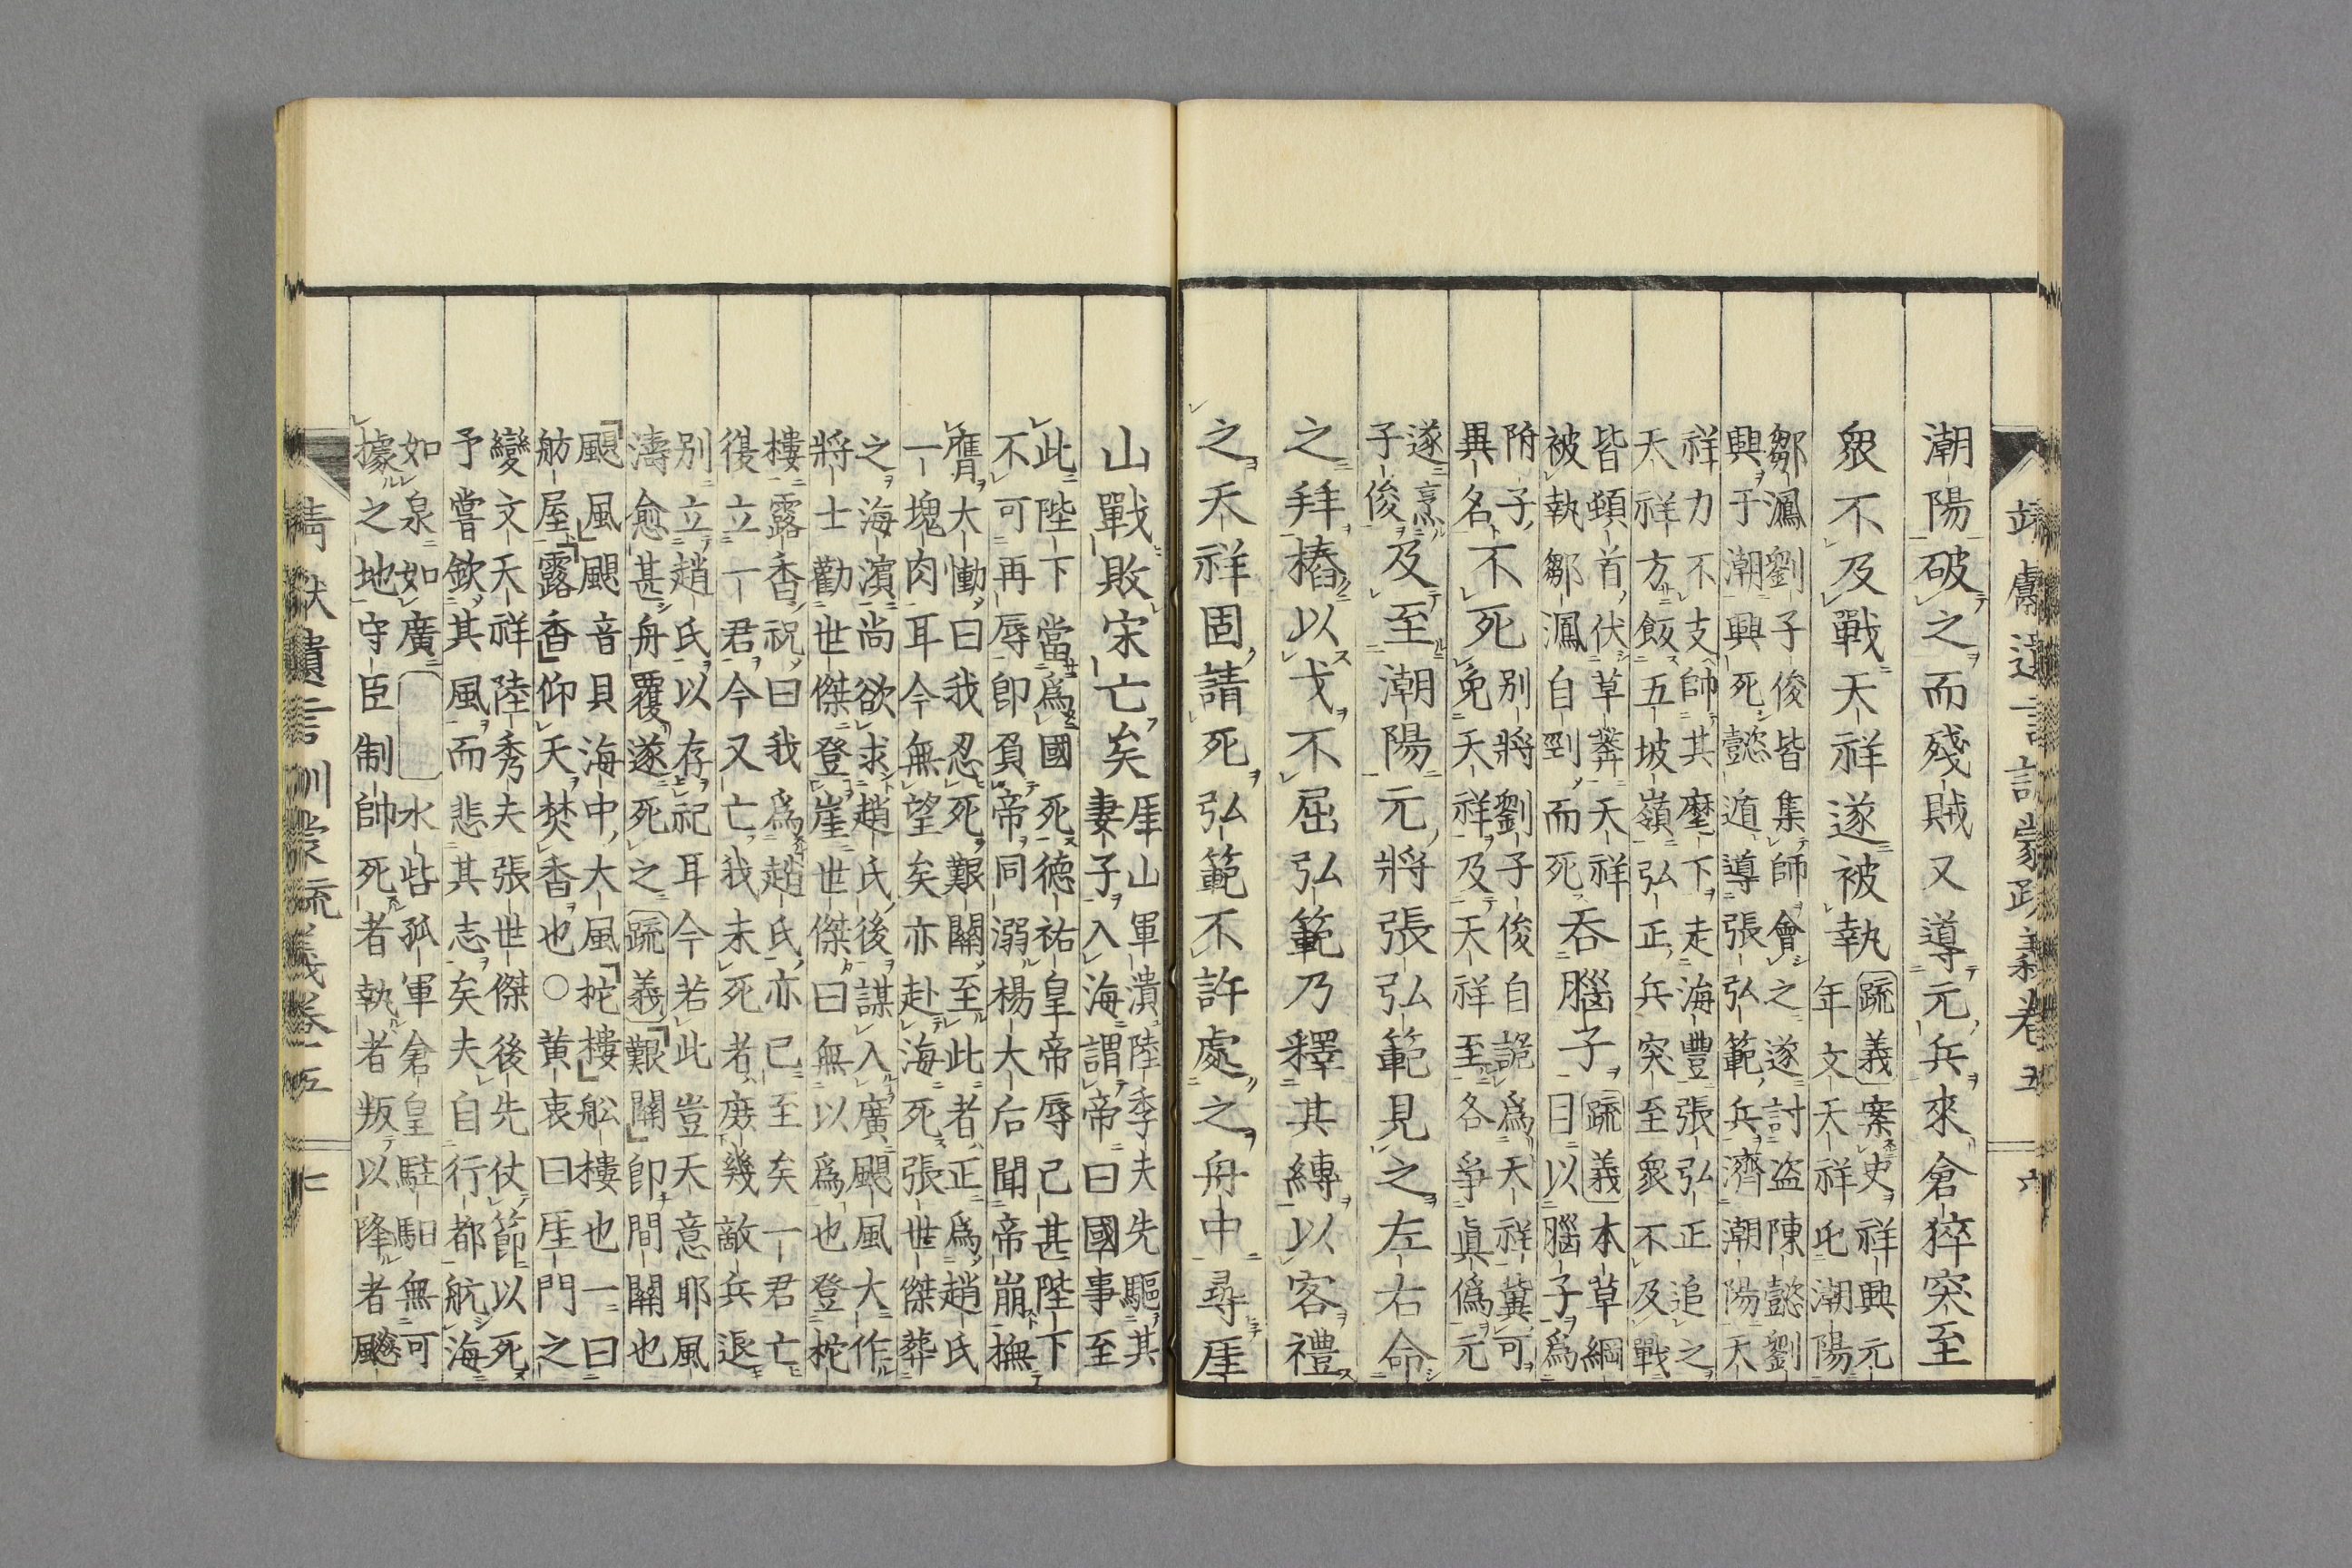 靖獻遺言訓蒙疏義卷五 六
潮陽破之而殘賊又導元兵來倉猝突至
衆不及戰天祥遂被執
疏義案史祥興元
年文天祥屯潮陽
鄒㵯劉子俊皆集師會之遂討盜陳懿劉
興于潮興死懿遁導張弘範兵濟潮陽天
祥力不支帥其麾下走海豐張弘正追之
天祥方飯五坡嶺弘正兵突至衆不及戰
皆頓首伏草莽天祥
被執鄒㵯自剄而死
吞腦子
疏義本草綱
目以腦子爲
附子
異名
不死
別將劉子俊自詭爲天祥冀可
免天祥及天祥至各爭眞僞元
遂烹
子俊
及至潮陽元將張弘範見之左右命
之拜樁以戈不屈弘範乃釋其縛以客禮
之天祥固請死弘範不許處之舟中尋厓
山戰敗宋亡矣
厓山軍潰陸秀夫先驅其
妻子入海謂帝曰國事至
此陛下當爲國死德祐皇帝辱已甚陛下
不可再辱卽負帝同溺楊太后聞帝崩撫
膺大慟曰我忍死艱關至此者正爲趙氏
一塊肉耳今無望矣亦赴海死張世傑葬
之海濵尚欲求趙氏後謀入廣颶風大作
將士勸世傑登崖世傑曰無以爲也登柁
樓露香祝曰我爲趙氏亦已至矣一君亡
復立一君今又亡我未死者庶幾敵兵退
別立趙氏以存祀耳今若此豈天意耶風
濤愈甚舟覆遂死之疏義艱關卽間關也
颶風颶音貝海中大風柁樓舩樓也一曰
舫屋露香仰天焚香也○黄衷曰厓門之
變文天祥陸秀夫張世傑後先仗節以死
予嘗欽其風而悲其志矣夫自行都航海
如泉如廣水砦孤軍倉皇駐馹無可
據之地守臣制帥死者執者叛以降者颶
靖獻遺言訓蒙疏義卷五 七